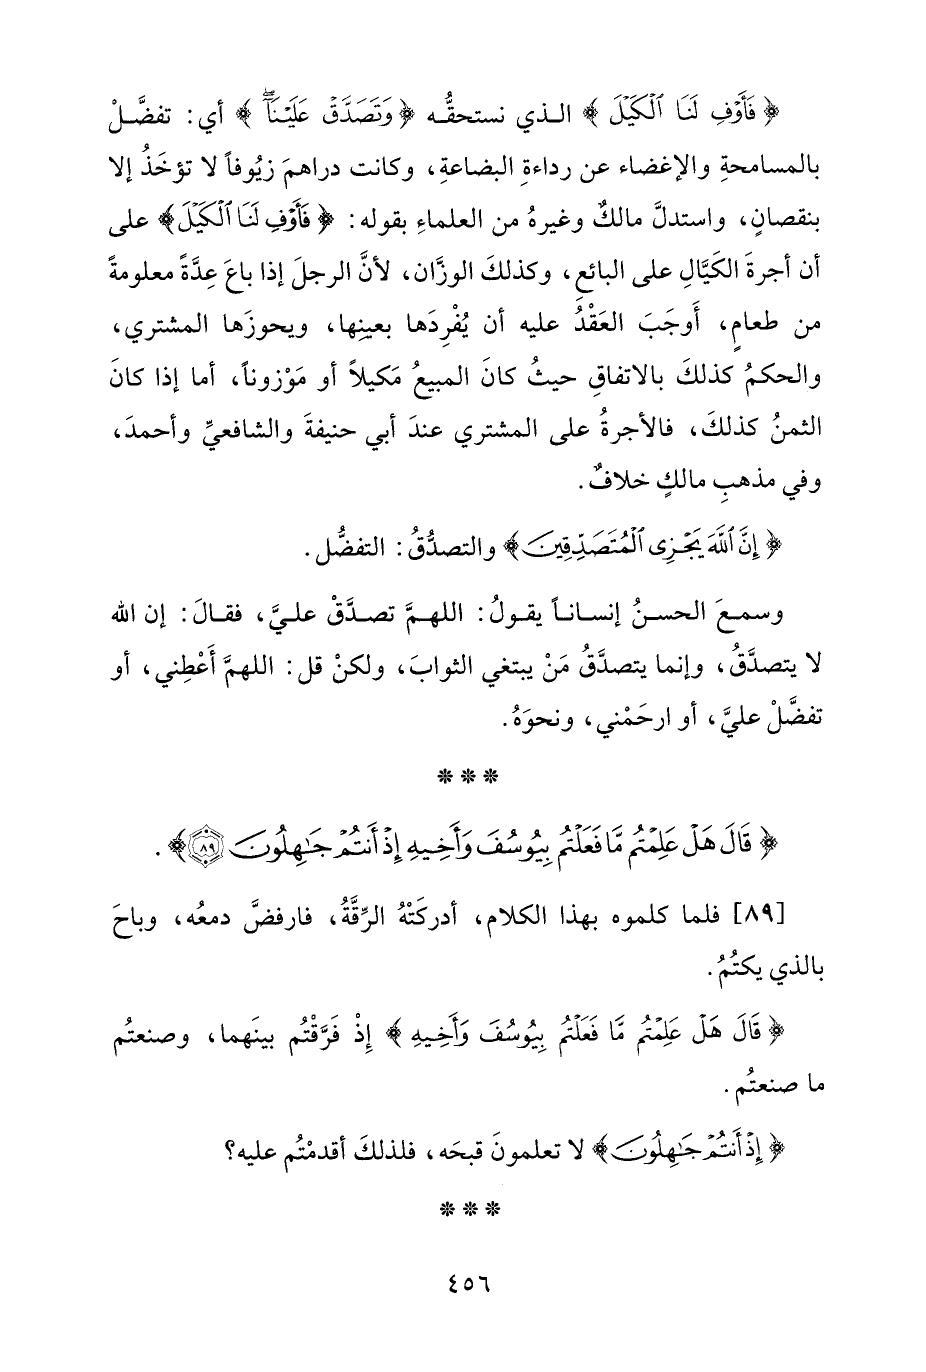 ﴿ فَأَوْفِ لَنَا ٱلْكَيْلَ ﴾ الـذي نستحقُّـه ﴿ وَتَصَدَّقْ عَلَيْنَآ ۖ ﴾ أي: تفضَّلْ
بالمسامحةِ والإغضاء عن رداءةِ البضاعةِ، وكانت دراهمَ زيُوفاً لا تؤخَذُ إلا
بنقصانٍ، واستدلَّ مالكٌ وغيرهُ من العلماءِ بقوله: ﴿ فَأَوْفِ لَنَا ٱلْكَيْلَ ﴾ على
أن أجرةَ الكَيَّالِ على البائعِ، وكذلكَ الوزَّان، لأنَّ الرجلَ إذا باعَ عِدَّةً معلومةً
من طعامٍ، أَوجَبَ العَقْدُ عليه أن يُفْرِدَها بعينِها، ويحوزَها المشتري،
والحكمُ كذلكَ بالاتفاقِ حيثُ كانَ المبيعُ مَكيلاً أو مَوْزوناً، أما إذا كانَ
الثمنُ كذلكَ، فالأجرةُ على المشتري عندَ أبي حنيفةَ والشافعيِّ وأحمدَ،
وفي مذهبِ مالكٍ خلافٌ.
﴿ إِنَّ ٱللَّهَ يَجْزِى ٱلْمُتَصَدِّقِينَ ﴾ والتصدُّقُ: التفضُّل.
وسمـعَ الحسـنُ إنسـانـاً يقـولُ: اللهـمَّ تصـدَّقْ علـيَّ، فقـالَ: إن الله
لا يتصدَّقُ، وإنما يتصدَّقُ مَنْ يبتغي الثوابَ، ولكنْ قل: اللهمَّ أَعْطِني، أو
تفضَّلْ عليَّ، أو ارحَمْني، ونحوَهُ.
* * *
﴿ قَالَ هَلْ عَلِمْتُم مَّا فَعَلْتُم بِيُوسُفَ وَأَخِيهِ إِذْ أَنتُمْ جَٰهِلُونَ ٨٩ ﴾.
[٨٩] فلما كلموه بهذا الكلام، أدركَتْهُ الرِّقَّةُ، فارفضَّ دمعُه، وباحَ
بالذي يكتُمُ.
﴿ قَالَ هَلْ عَلِمْتُم مَّا فَعَلْتُم بِيُوسُفَ وَأَخِيهِ ﴾ إِذْ فَرَّقْتُم بينَهما، وصنعتُم
ما صنعتُم.
﴿ إِذْ أَنتُمْ جَٰهِلُونَ ﴾ لا تعلمونَ قبحَه، فلذلكَ أقدمْتُم عليه؟
* * *
٤٥٦